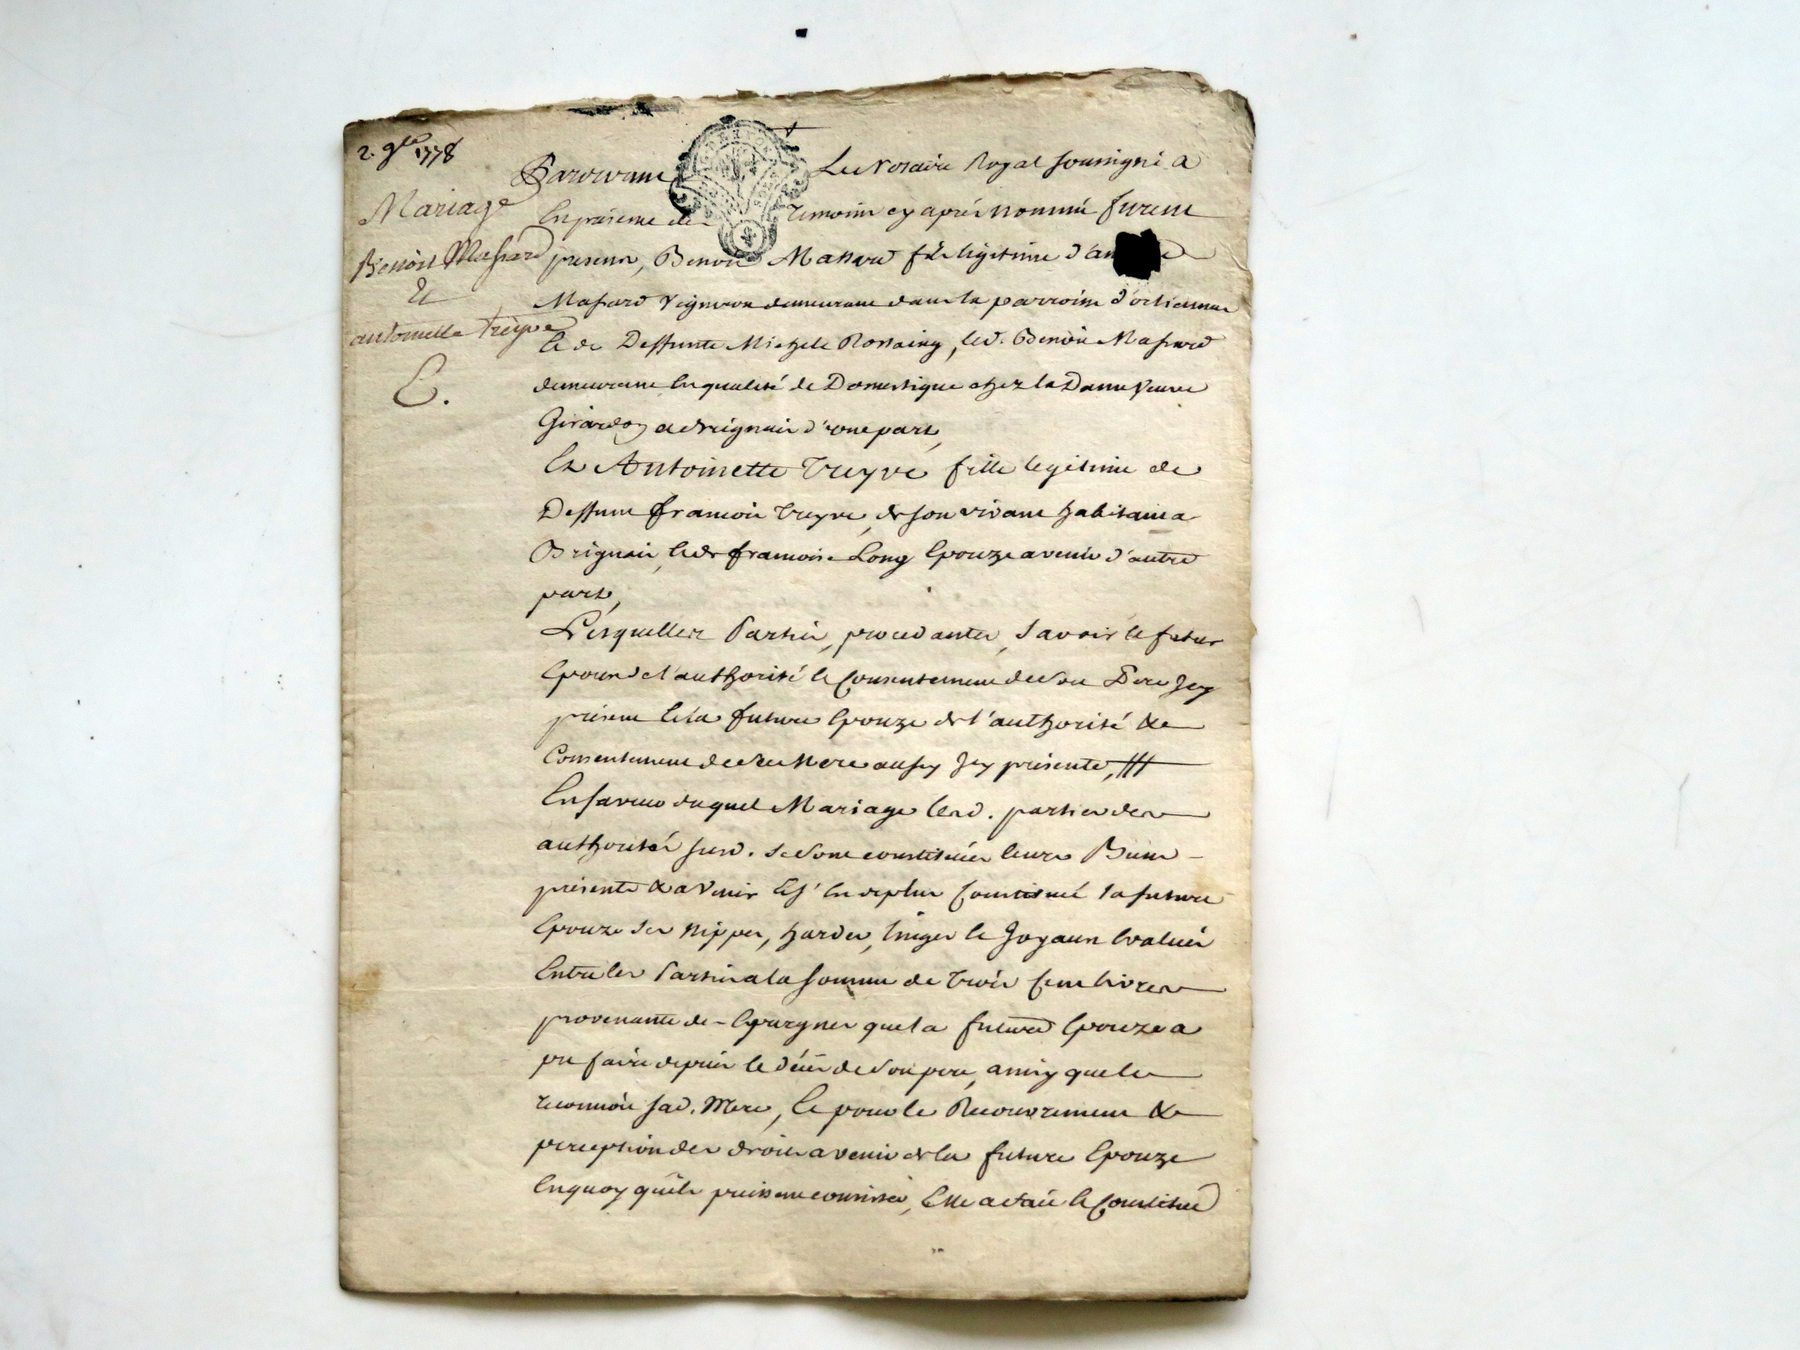 2. 9bre 1778
Mariage
Benoit Massard
&
antoinette Treyve
E.
Pardevant Le Notaire Royal soussigné &
En présence des temoins cy après nommés furent
presens, Benoit Massard fils légitime d'an
Massard Vigneron demeurant dans la parroisse d'orlienas
& de Deffunte Michele Rossaing, led. Benoit Massard
demeurant En qualité de Domestique chez la Dame Veuve
Girardon a Brignais d'une part,
Et Antoinette Treyve fille legitime de
Deffunt françois Treyve, de son vivant habitant a
Brignais, & de françoise Long Epouze avenir d'autre
part,
Lesquelles Parties, procedantes, savoir le futur
Epoux de l'authorité & Consentement de son Pere Icy
présent & la future Epouze de l'authorité &
Consentement de sa Mere aussy Icy présente,
En faveur duquel Mariage lesd. parties des
authorités susd. se sont constitués leurs Biens
présents & a Venir & s'En deplus Constitué la future
Epouze ses nippes, hardes, linges & Joyaux Evalués
Entre les Parties a la somme de Trois Cent livres
provenante des Epargnes que la future Epouze a
pu faire depuis le décès de son pere, ainsy que le
reconnoit sad. Mere, & pour le Recouvrement &
perception des droits avenir de la future Epouze
En quoy qu'ils puissent consister, Elle a fait & Constitué